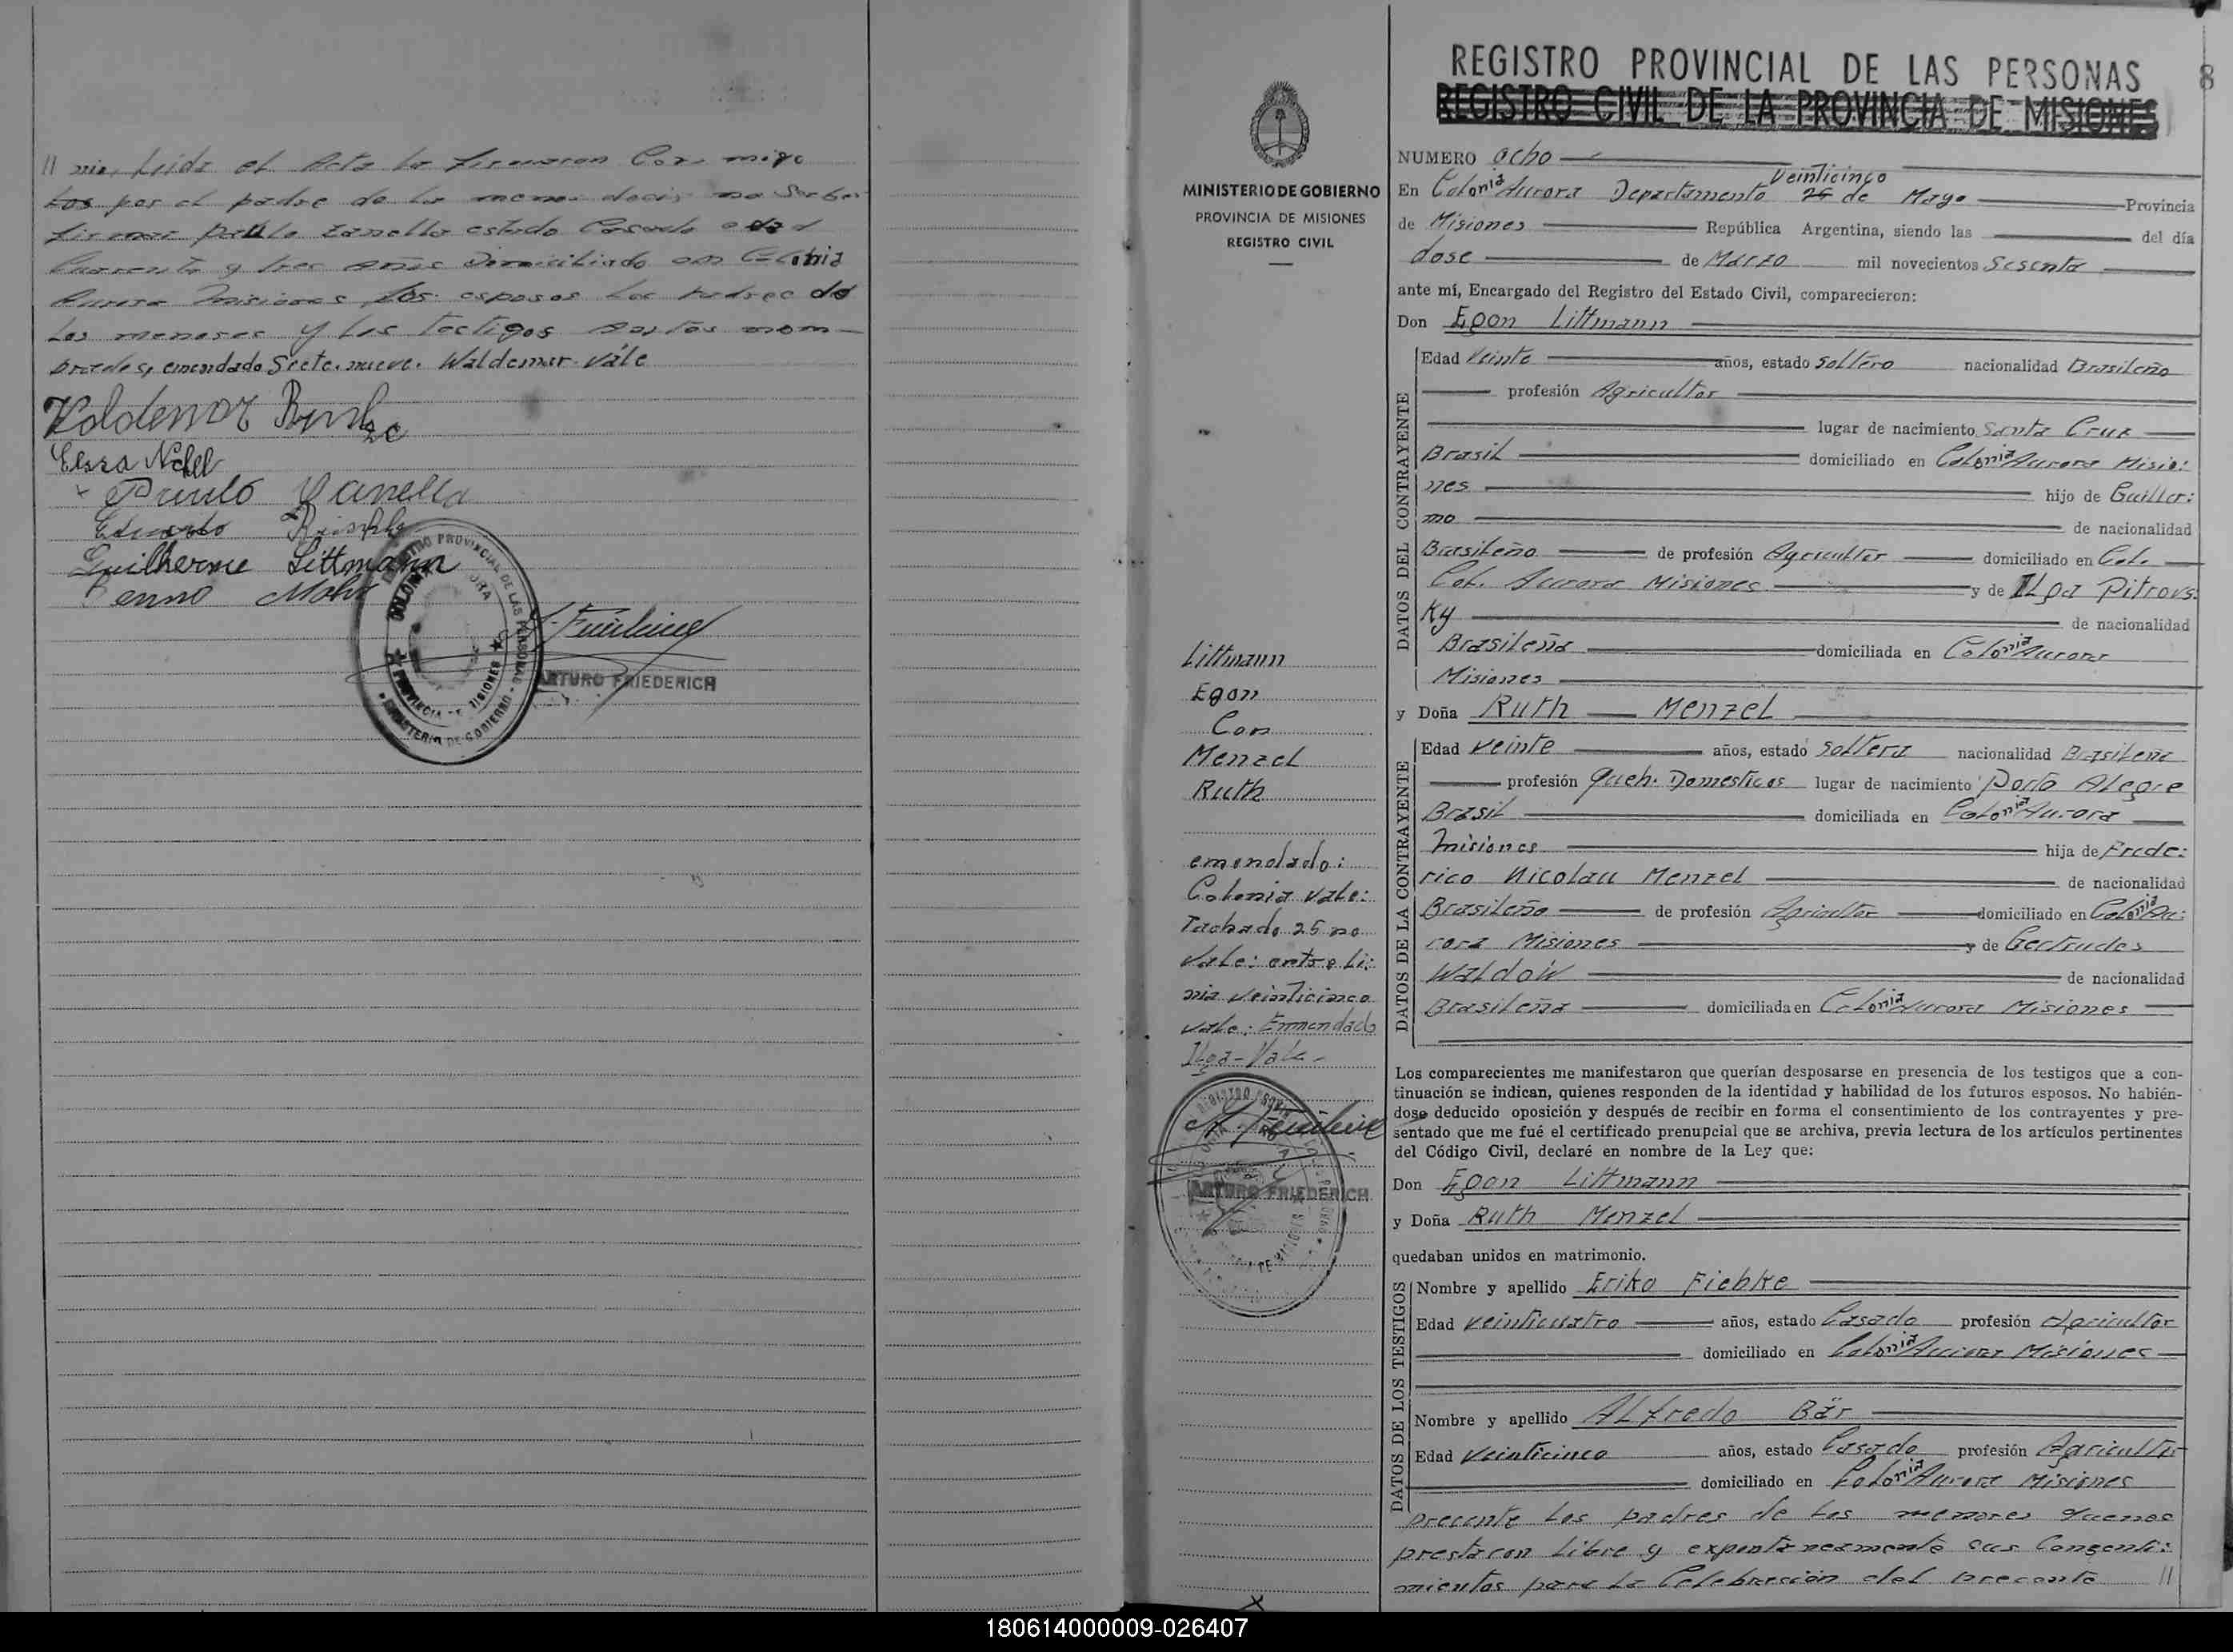 // nio, Leida el Acta la firmaron Con migo
tos por el padre de la menor decir no Saber
firmar Paulo Zanella estado Casado edad
Cuarenta y tres años Domiciliado en Colonia
Aurora Misiones, los esposos Los padres de
Los menores y los testigos Antes nom-
brados, emendado Siete. nueve. Waldemar. Vále
Eduardo
Guilherme Littmann
Benno Mohr
ARTURO FRIEDERICH
REGISTRO PROVINCIAL DE LAS PERSONAS
8
REGISTRO CIVIL DE LA PROVINCIA DE MISIONES
MINISTERIO DE GOBIERNO
PROVINCIA DE MISIONES
REGISTRO CIVIL
Littmann
Egon
Con
Menzel
Ruth
emendado:
Colonia vale:
Tachado 25 no
Vale: entre Li:
nia veinticinco
vale: Enmendado
Ilga - Vale -
ARTURO FRIEDERICH
NUMERO ocho
Veinticinco
En Colonia Aurora Departamento 25 de Mayo Provincia
de Misiones República Argentina, siendo las del día
dose de Marzo mil novecientos Sesenta
ante mí, Encargado del Registro del Estado Civil, comparecieron:
Don Egon Littmann
DATOS DEL CONTRAYENTE
Edad Veinte años, estado Soltero nacionalidad Brasileño
profesión Agricultor
lugar de nacimiento Santa Cruz
Brasil domiciliado en Colonia Aurora Misio:
nes hijo de Guiller:
mo de nacionalidad
Brasileño de profesión Agricultor domiciliado en Col.
Col. Aurora Misiones y de Ilga Pitrovs:
Ky de nacionalidad
Brasileña domiciliada en Colonia Aurora
Misiones
y Doña Ruth Menzel
DATOS DE LA CONTRAYENTE
Edad veinte años, estado soltera nacionalidad Brasileña
profesión Queh. Domesticos lugar de nacimiento Porto Alegre
Brasil domiciliada en Colonia Aurora
Misiones hija de Frede:
rico Nicolau Menzel de nacionalidad
Brasileño de profesión Agricultor domiciliado en Colonia Au:
rora Misiones y de Gertrudes
Waldow de nacionalidad
Brasileña domiciliada en Colonia Aurora Misiones
Los comparecientes me manifestaron que querían desposarse en presencia de los testigos que a con-
tinuación se indican, quienes responden de la identidad y habilidad de los futuros esposos. No habién-
dose deducido oposición y después de recibir en forma el consentimiento de los contrayentes y pre-
sentado que me fué el certificado prenupcial que se archiva, previa lectura de los artículos pertinentes
del Código Civil, declaré en nombre de la Ley que:
Don Egon Littmann
y Doña Ruth Menzel
quedaban unidos en matrimonio.
DATOS DE LOS TESTIGOS
Nombre y apellido Eriko Fiebke
Edad veinticuatro años, estado Casado profesión Agricultor
domiciliado en Colonia Aurora Misiones
Nombre y apellido Alfredo Bär
Edad Veinticinco años, estado Casado profesión Agricultor
domiciliado en Colonia Aurora Misiones
presente Los padres de Los menores quenes
prestaron Libre y expontaneamente sus Consenti:
mientos para La Celebración del presente //
180614000009-026407